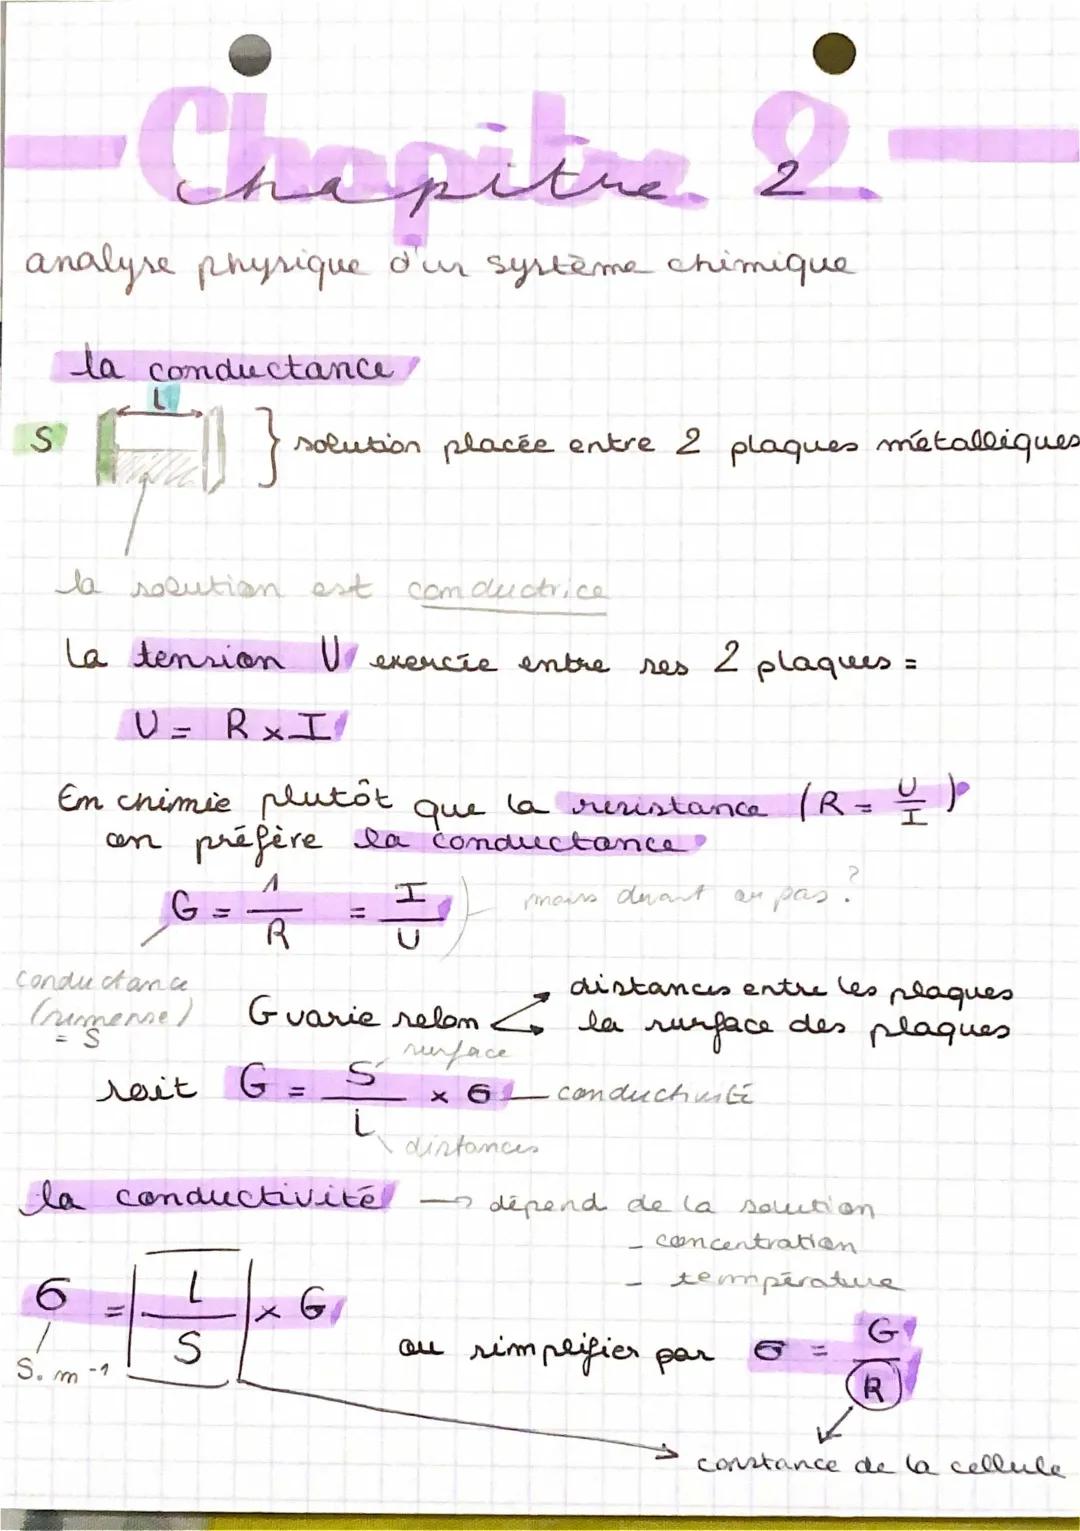 Chapitre 2
Chapitre 2
analyse physique d'un système chimique
la conductance
L
S
solution placée entre 2 plaques métalliques
la solution est conductrice
la tension U exercée entre ses 2 plaques =
U = R x I
En chimie plutôt que la resistance (R = U/I)
on préfère la conductance
G = 1/R = I/U
mais durant ou pas ?
conductance
= S
G varie selon
distances entre les plaques
la surface des plaques
soit G = S/L x σ
surface
conductivité
distances
la conductivité → dépend de la solution
- concentration
- température
σ = L/S x G
S. m -1
ou simplifier par σ = G/R
constance de la cellule